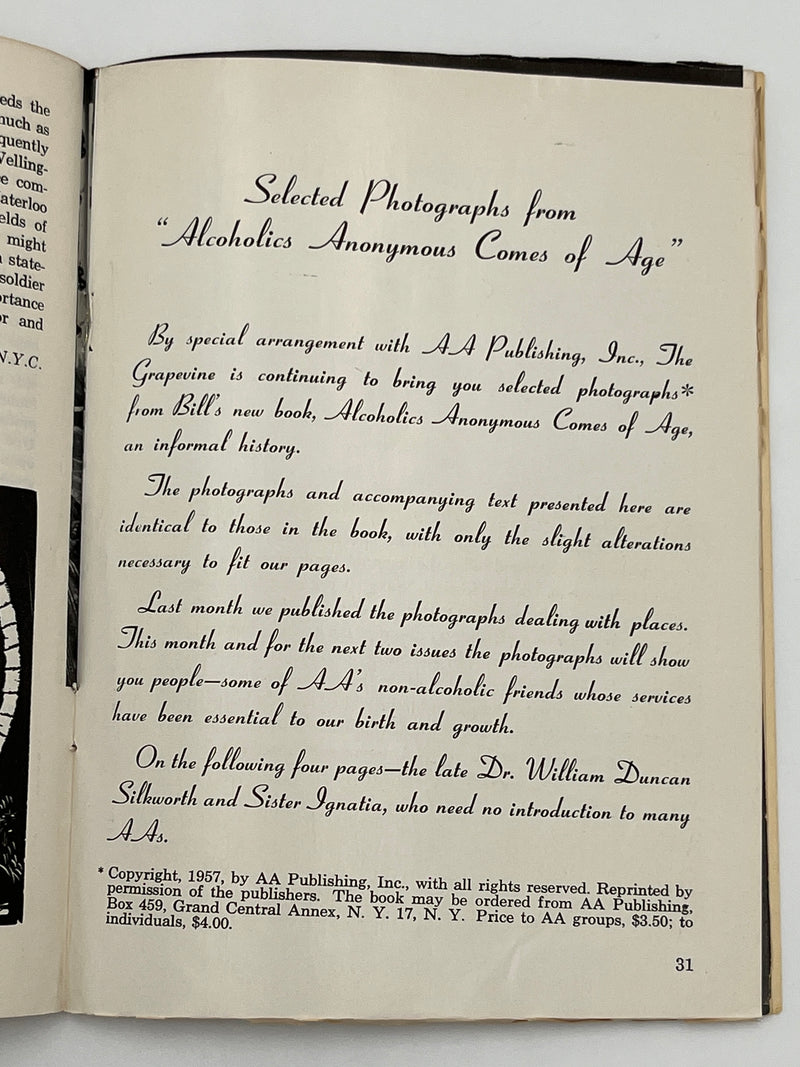 eds the
much as
quently
Welling-
e com-
aterloo
elds of
might
state-
soldier
rtance
or and
N.Y.C.
Selected Photographs from
“Alcoholics Anonymous Comes of Age”
By special arrangement with AA Publishing, Inc., The
Grapevine is continuing to bring you selected photographs*
from Bill's new book, Alcoholics Anonymous Comes of Age,
an informal history.
The photographs and accompanying text presented here are
identical to those in the book, with only the slight alterations
necessary to fit our pages.
Last month we published the photographs dealing with places.
This month and for the next two issues the photographs will show
you people—some of AA's non-alcoholic friends whose services
have been essential to our birth and growth.
On the following four pages—the late Dr. William Duncan
Silkworth and Sister Ignatia, who need no introduction to many
AAs.
* Copyright, 1957, by AA Publishing, Inc., with all rights reserved. Reprinted by
permission of the publishers. The book may be ordered from AA Publishing,
Box 459, Grand Central Annex, N. Y. 17, N. Y. Price to AA groups, $3.50; to
individuals, $4.00.
31